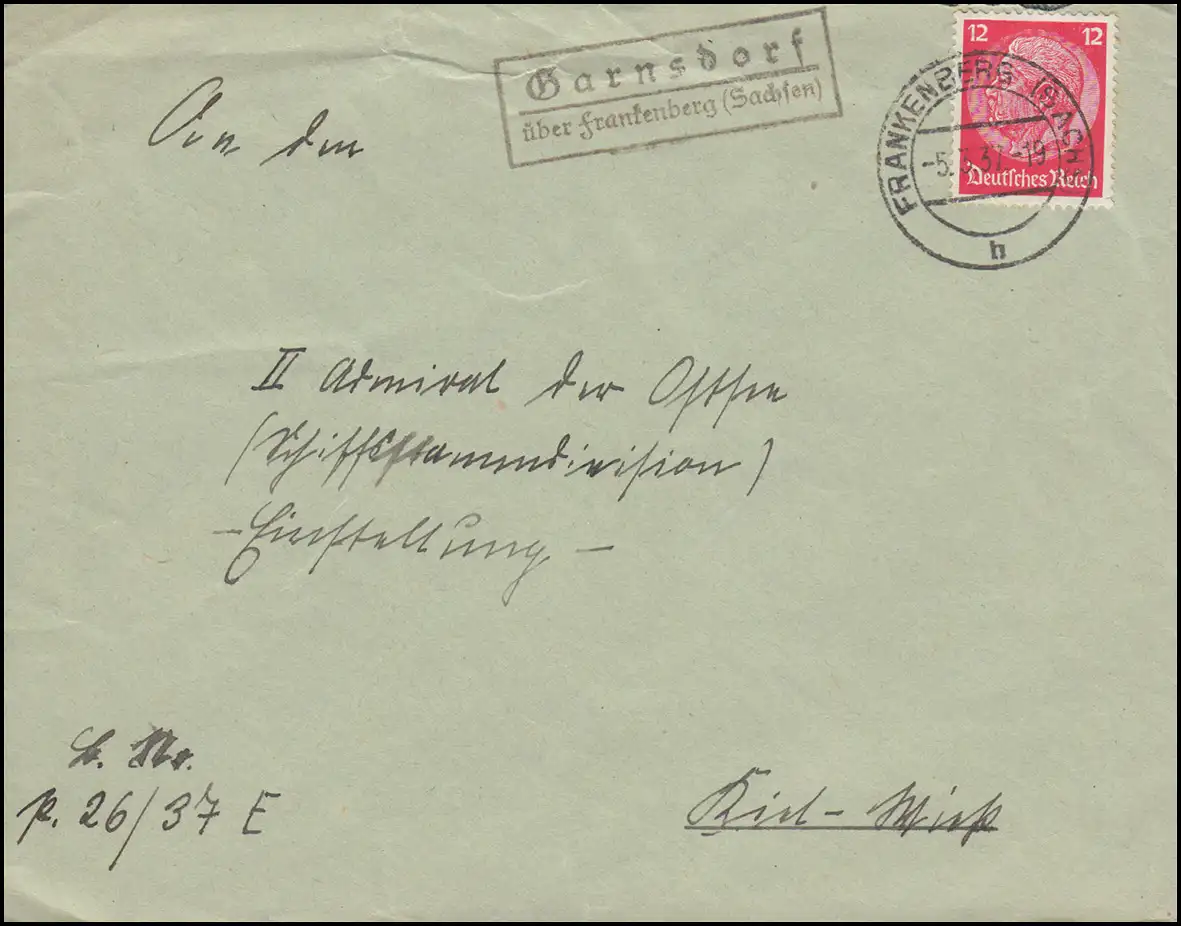 Garnsdorf
über Frankenberg (Sachsen)
12 12
Deutsches Reich
FRANKENBERG (SACHS)
37.-19
h
An den
II Admiral der Ostsee
(Schiffsstammdivision)
- Einstellung -
B. Nr.
p. 26/37 E
Kiel-Wiek